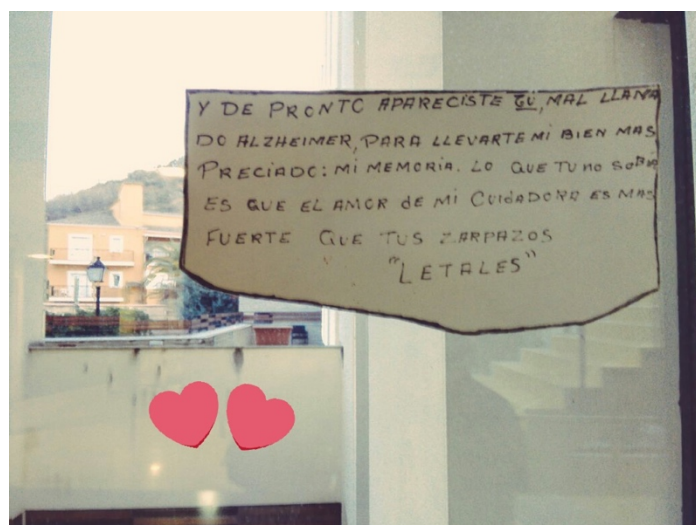 Y DE PRONTO APARECISTE TÚ, MAL LLAMA
DO ALZHEIMER, PARA LLEVARTE MI BIEN MAS
PRECIADO: MI MEMORIA. LO QUE TU NO SABIA
ES QUE EL AMOR DE MI CUIDADORA ES MAS
FUERTE QUE TUS ZARPAZOS
"LETALES"